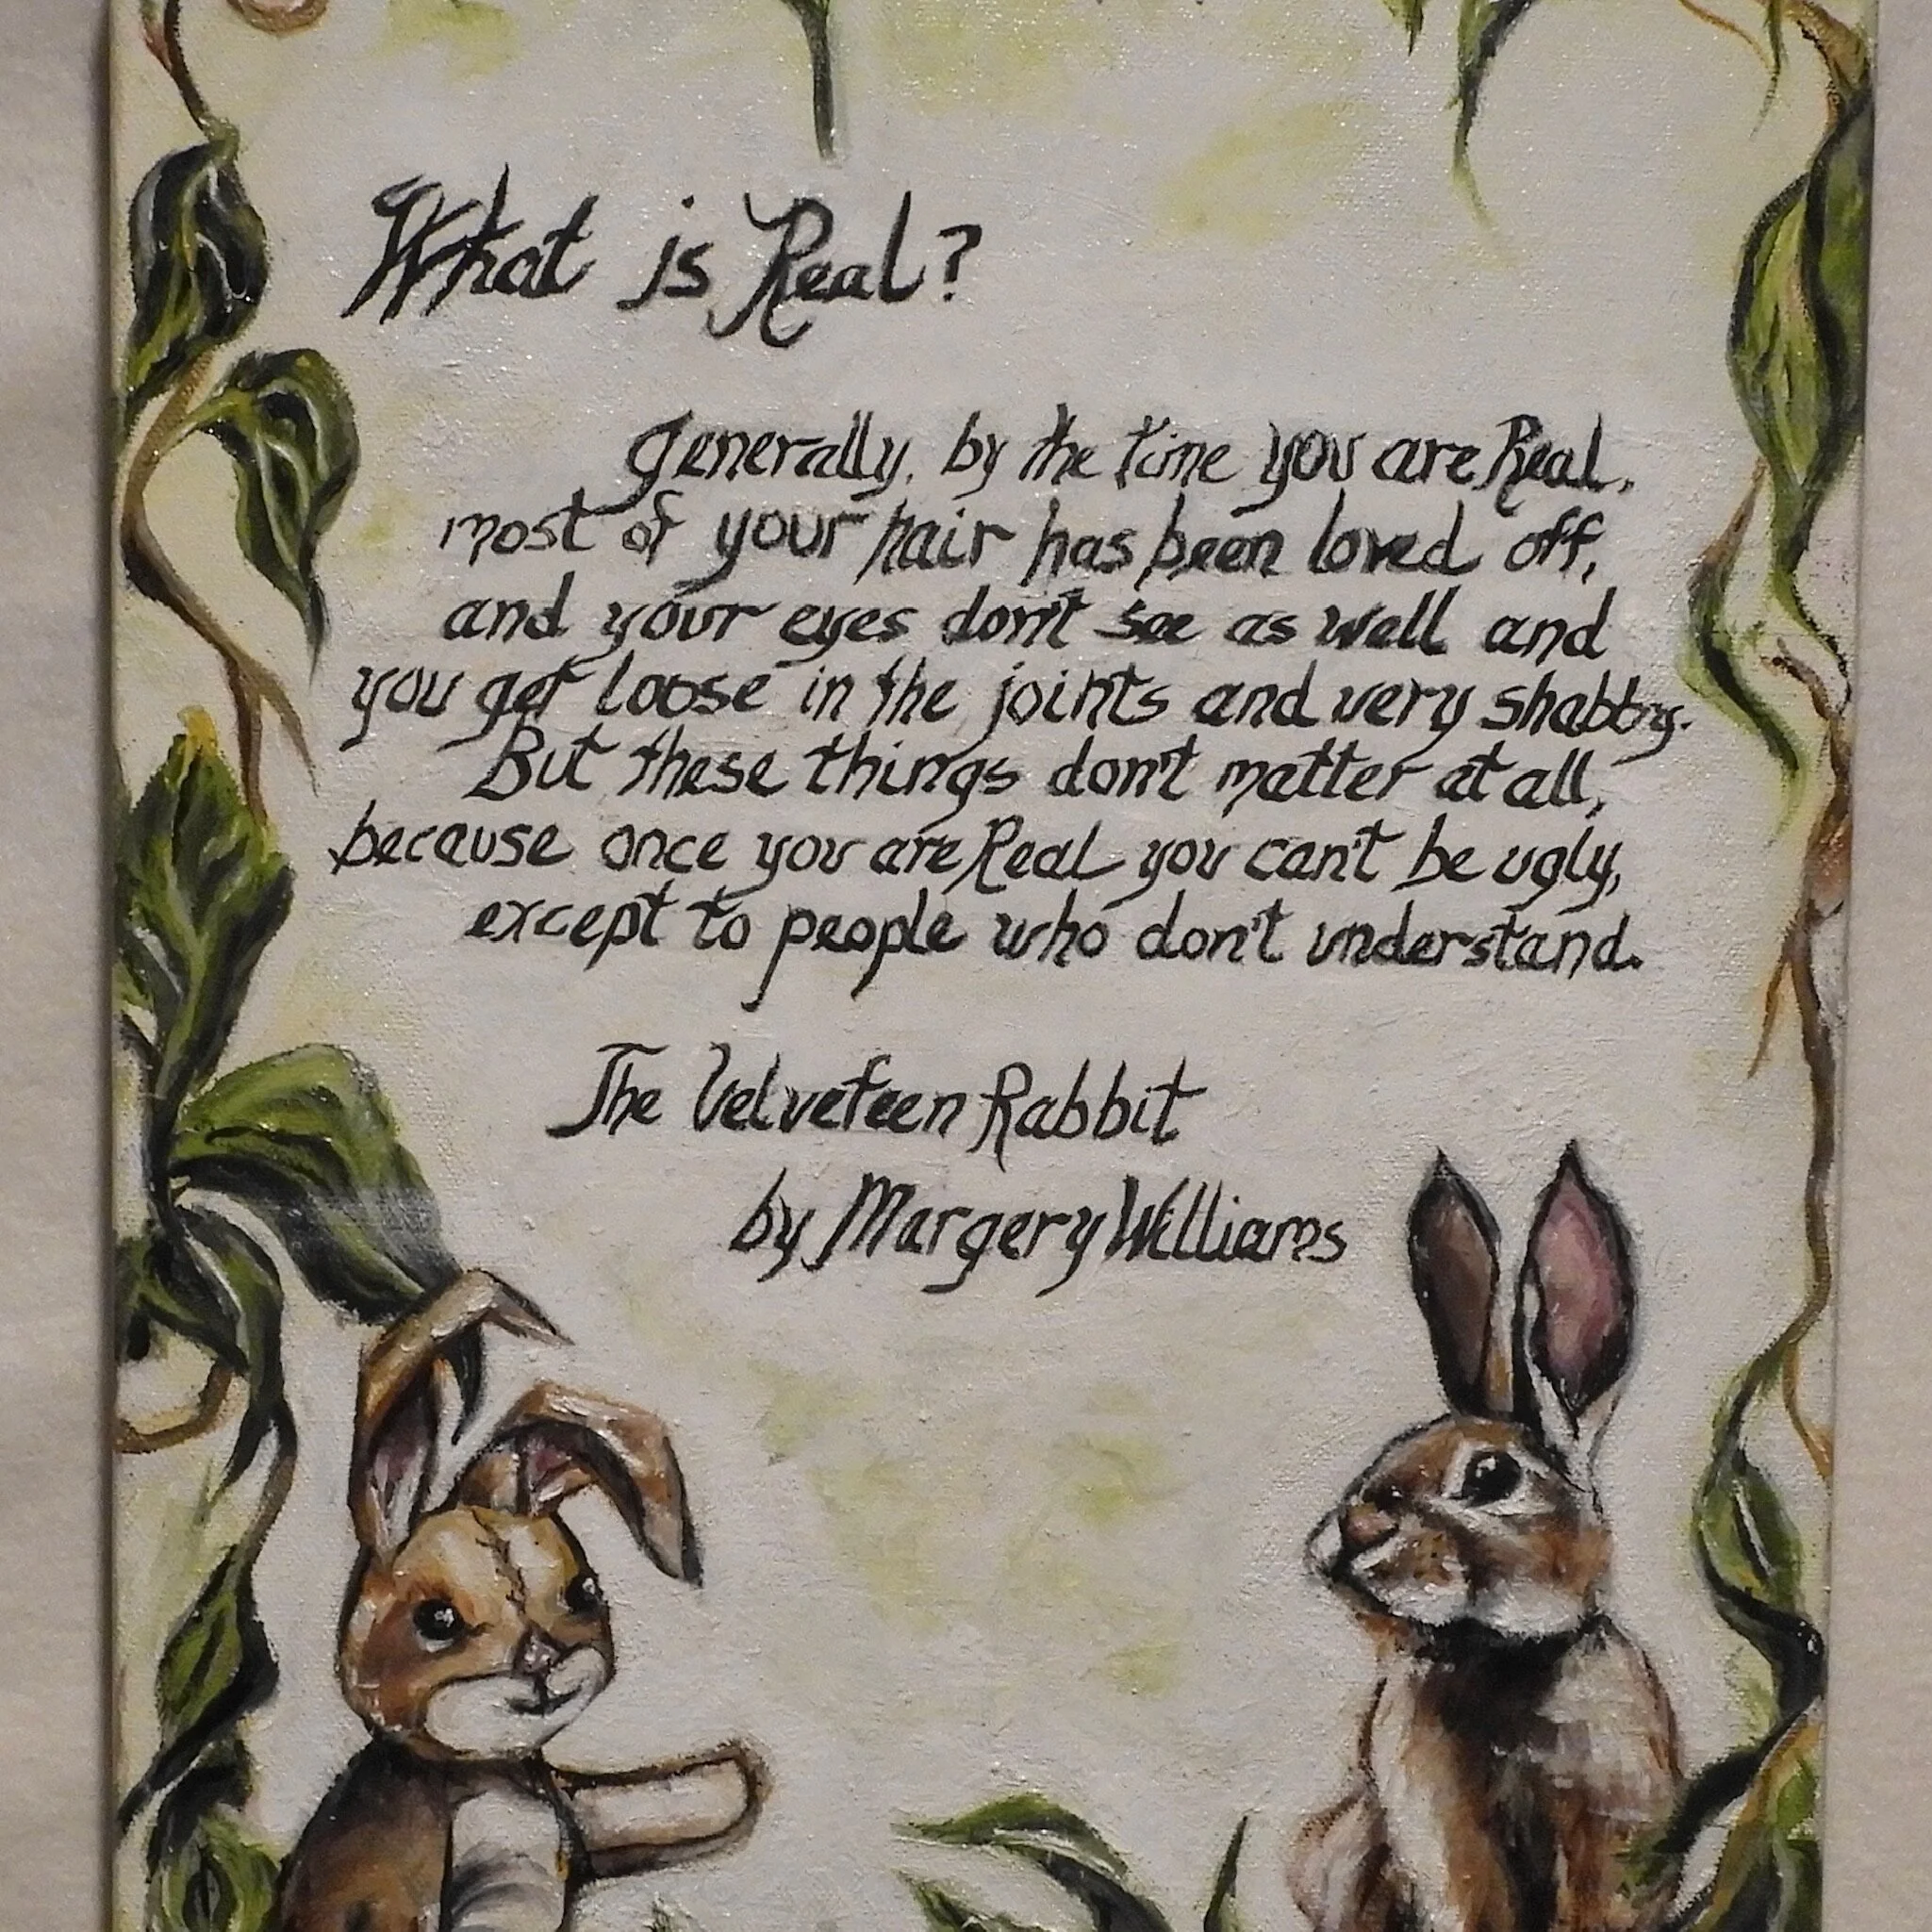 What is Real?
Generally, by the time you are Real,
most of your hair has been loved off,
and your eyes don't see as well and
you get loose in the joints and very shabby.
But these things don't matter at all,
because once you are Real you can't be ugly,
except to people who don't understand.
The Velveteen Rabbit
by Margery Williams